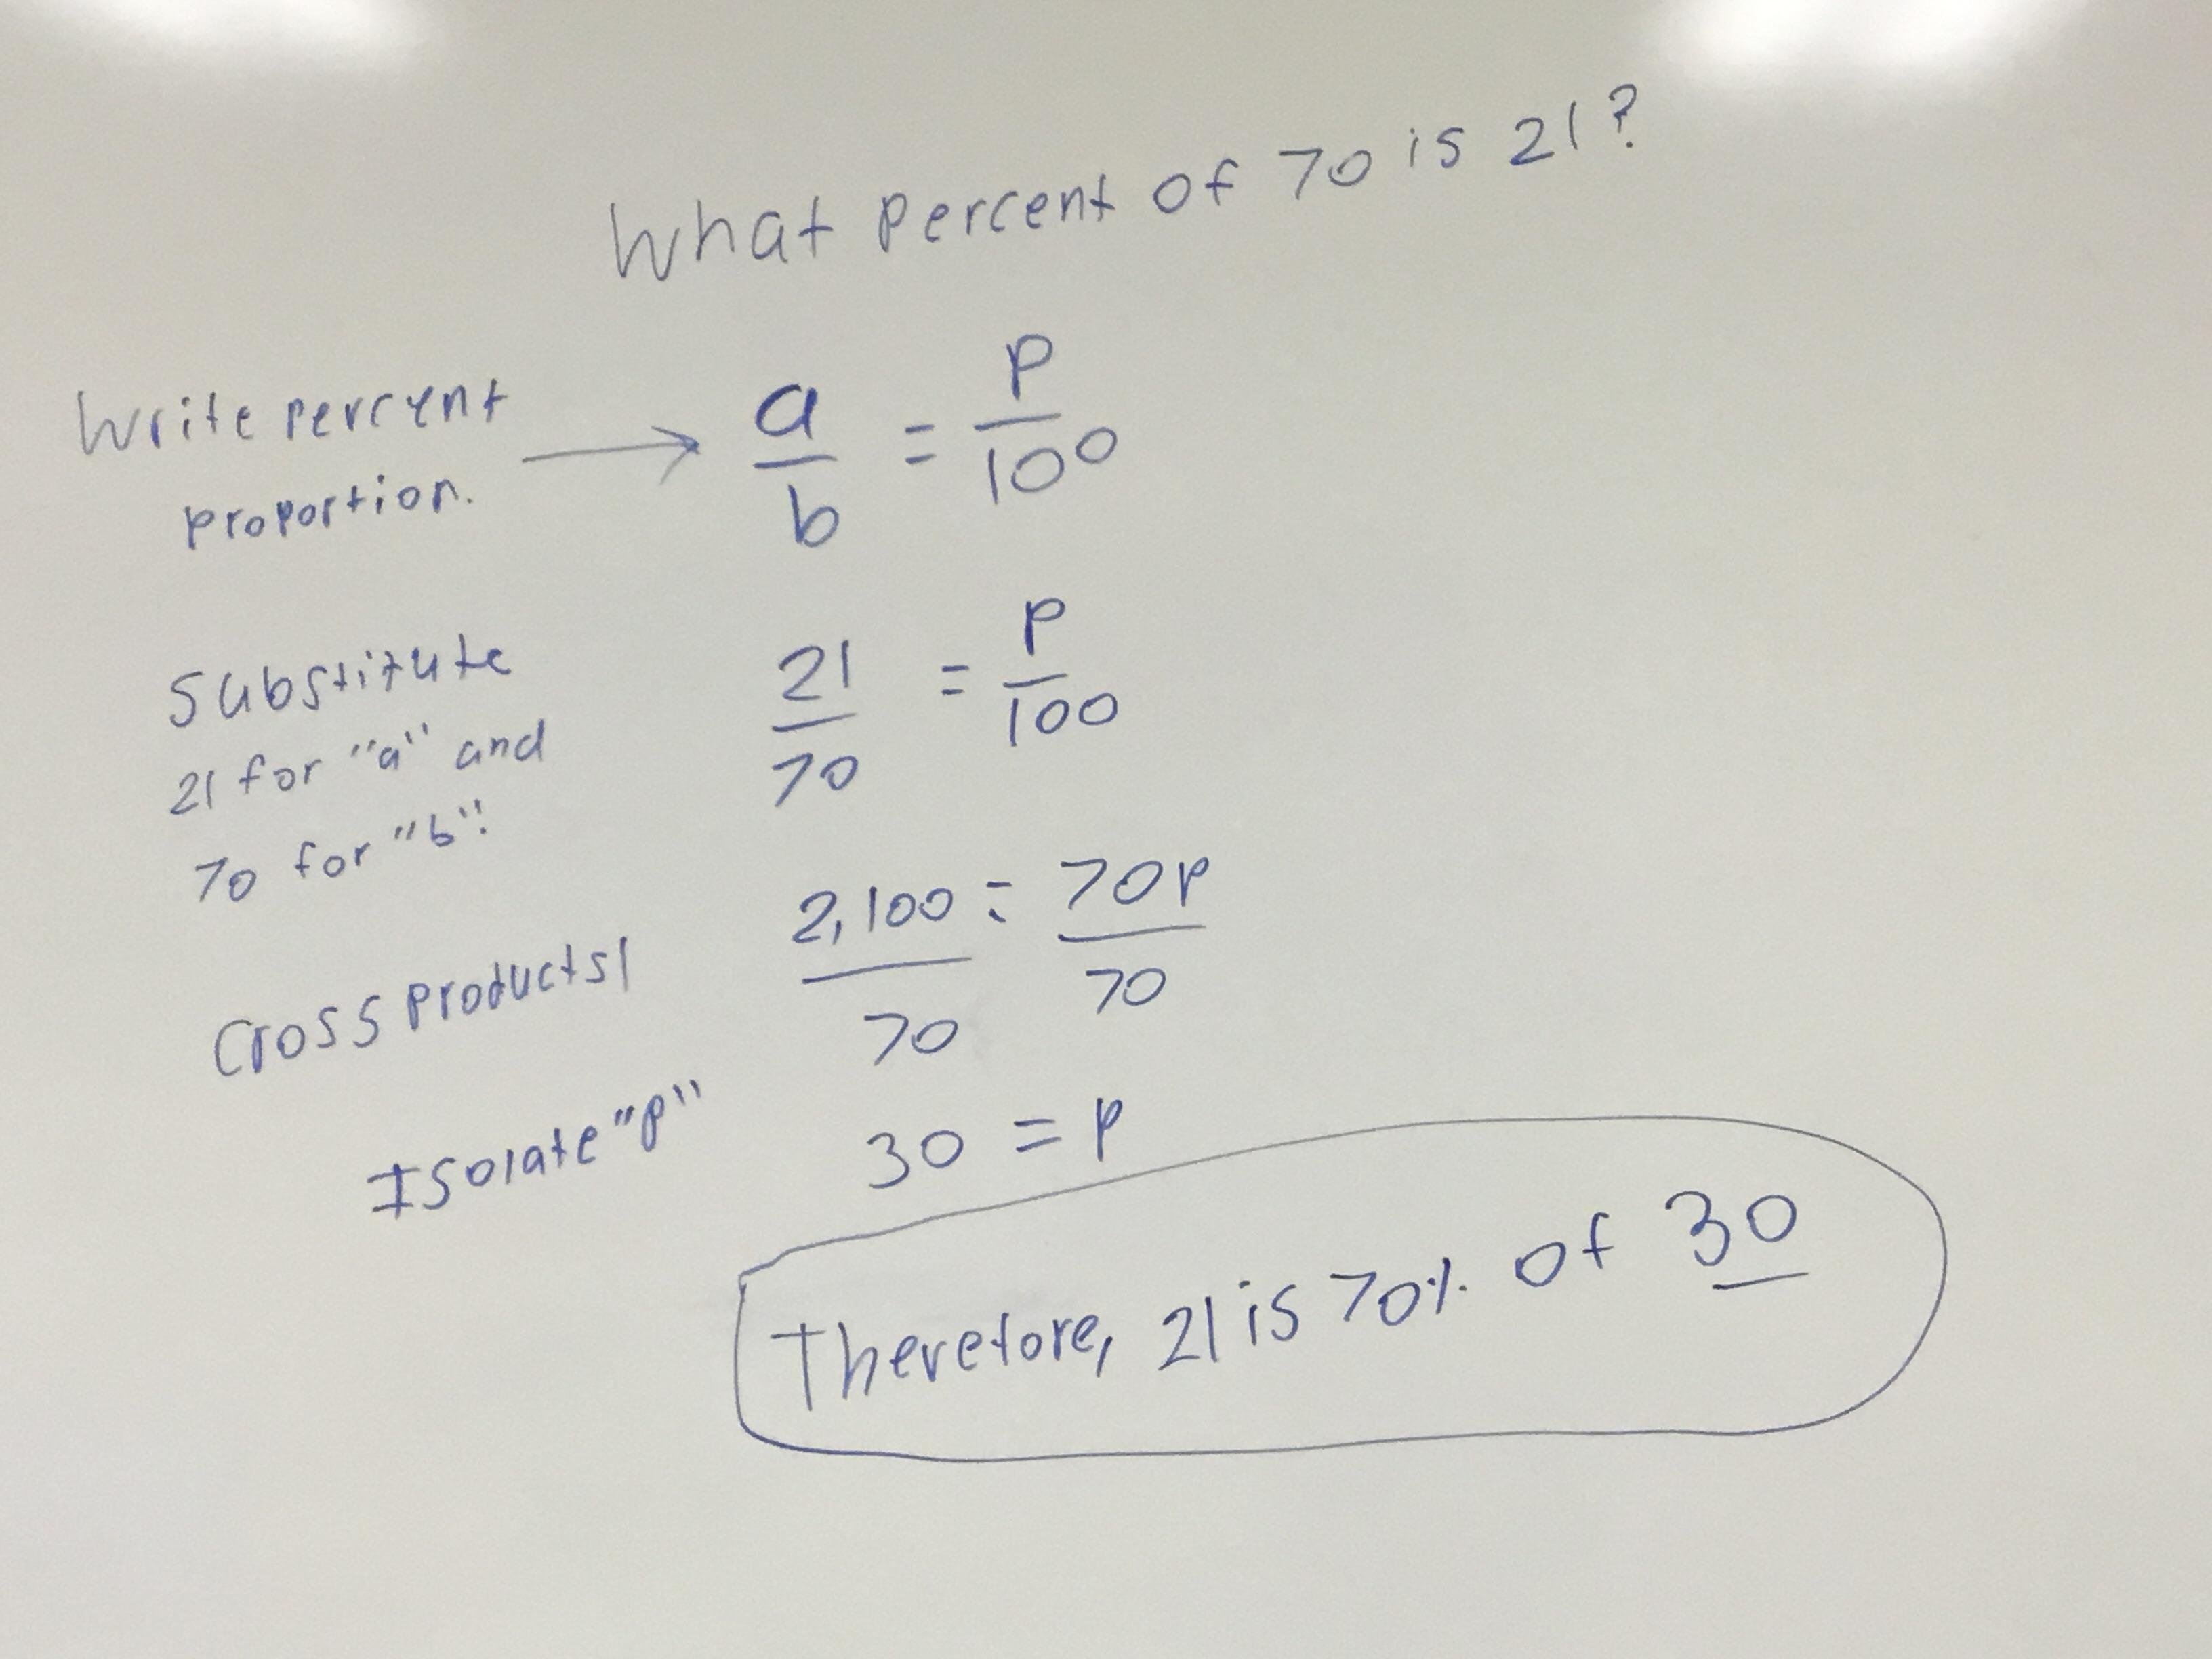 What percent of 70 is 21?
Write percent
proportion. → a/b = P/100
Substitute
21 for "a" and
70 for "b".
21/70 = P/100
Cross products
2,100/70 = 70P/70
Isolate "p"
30 = P
Therefore, 21 is 70% of 30